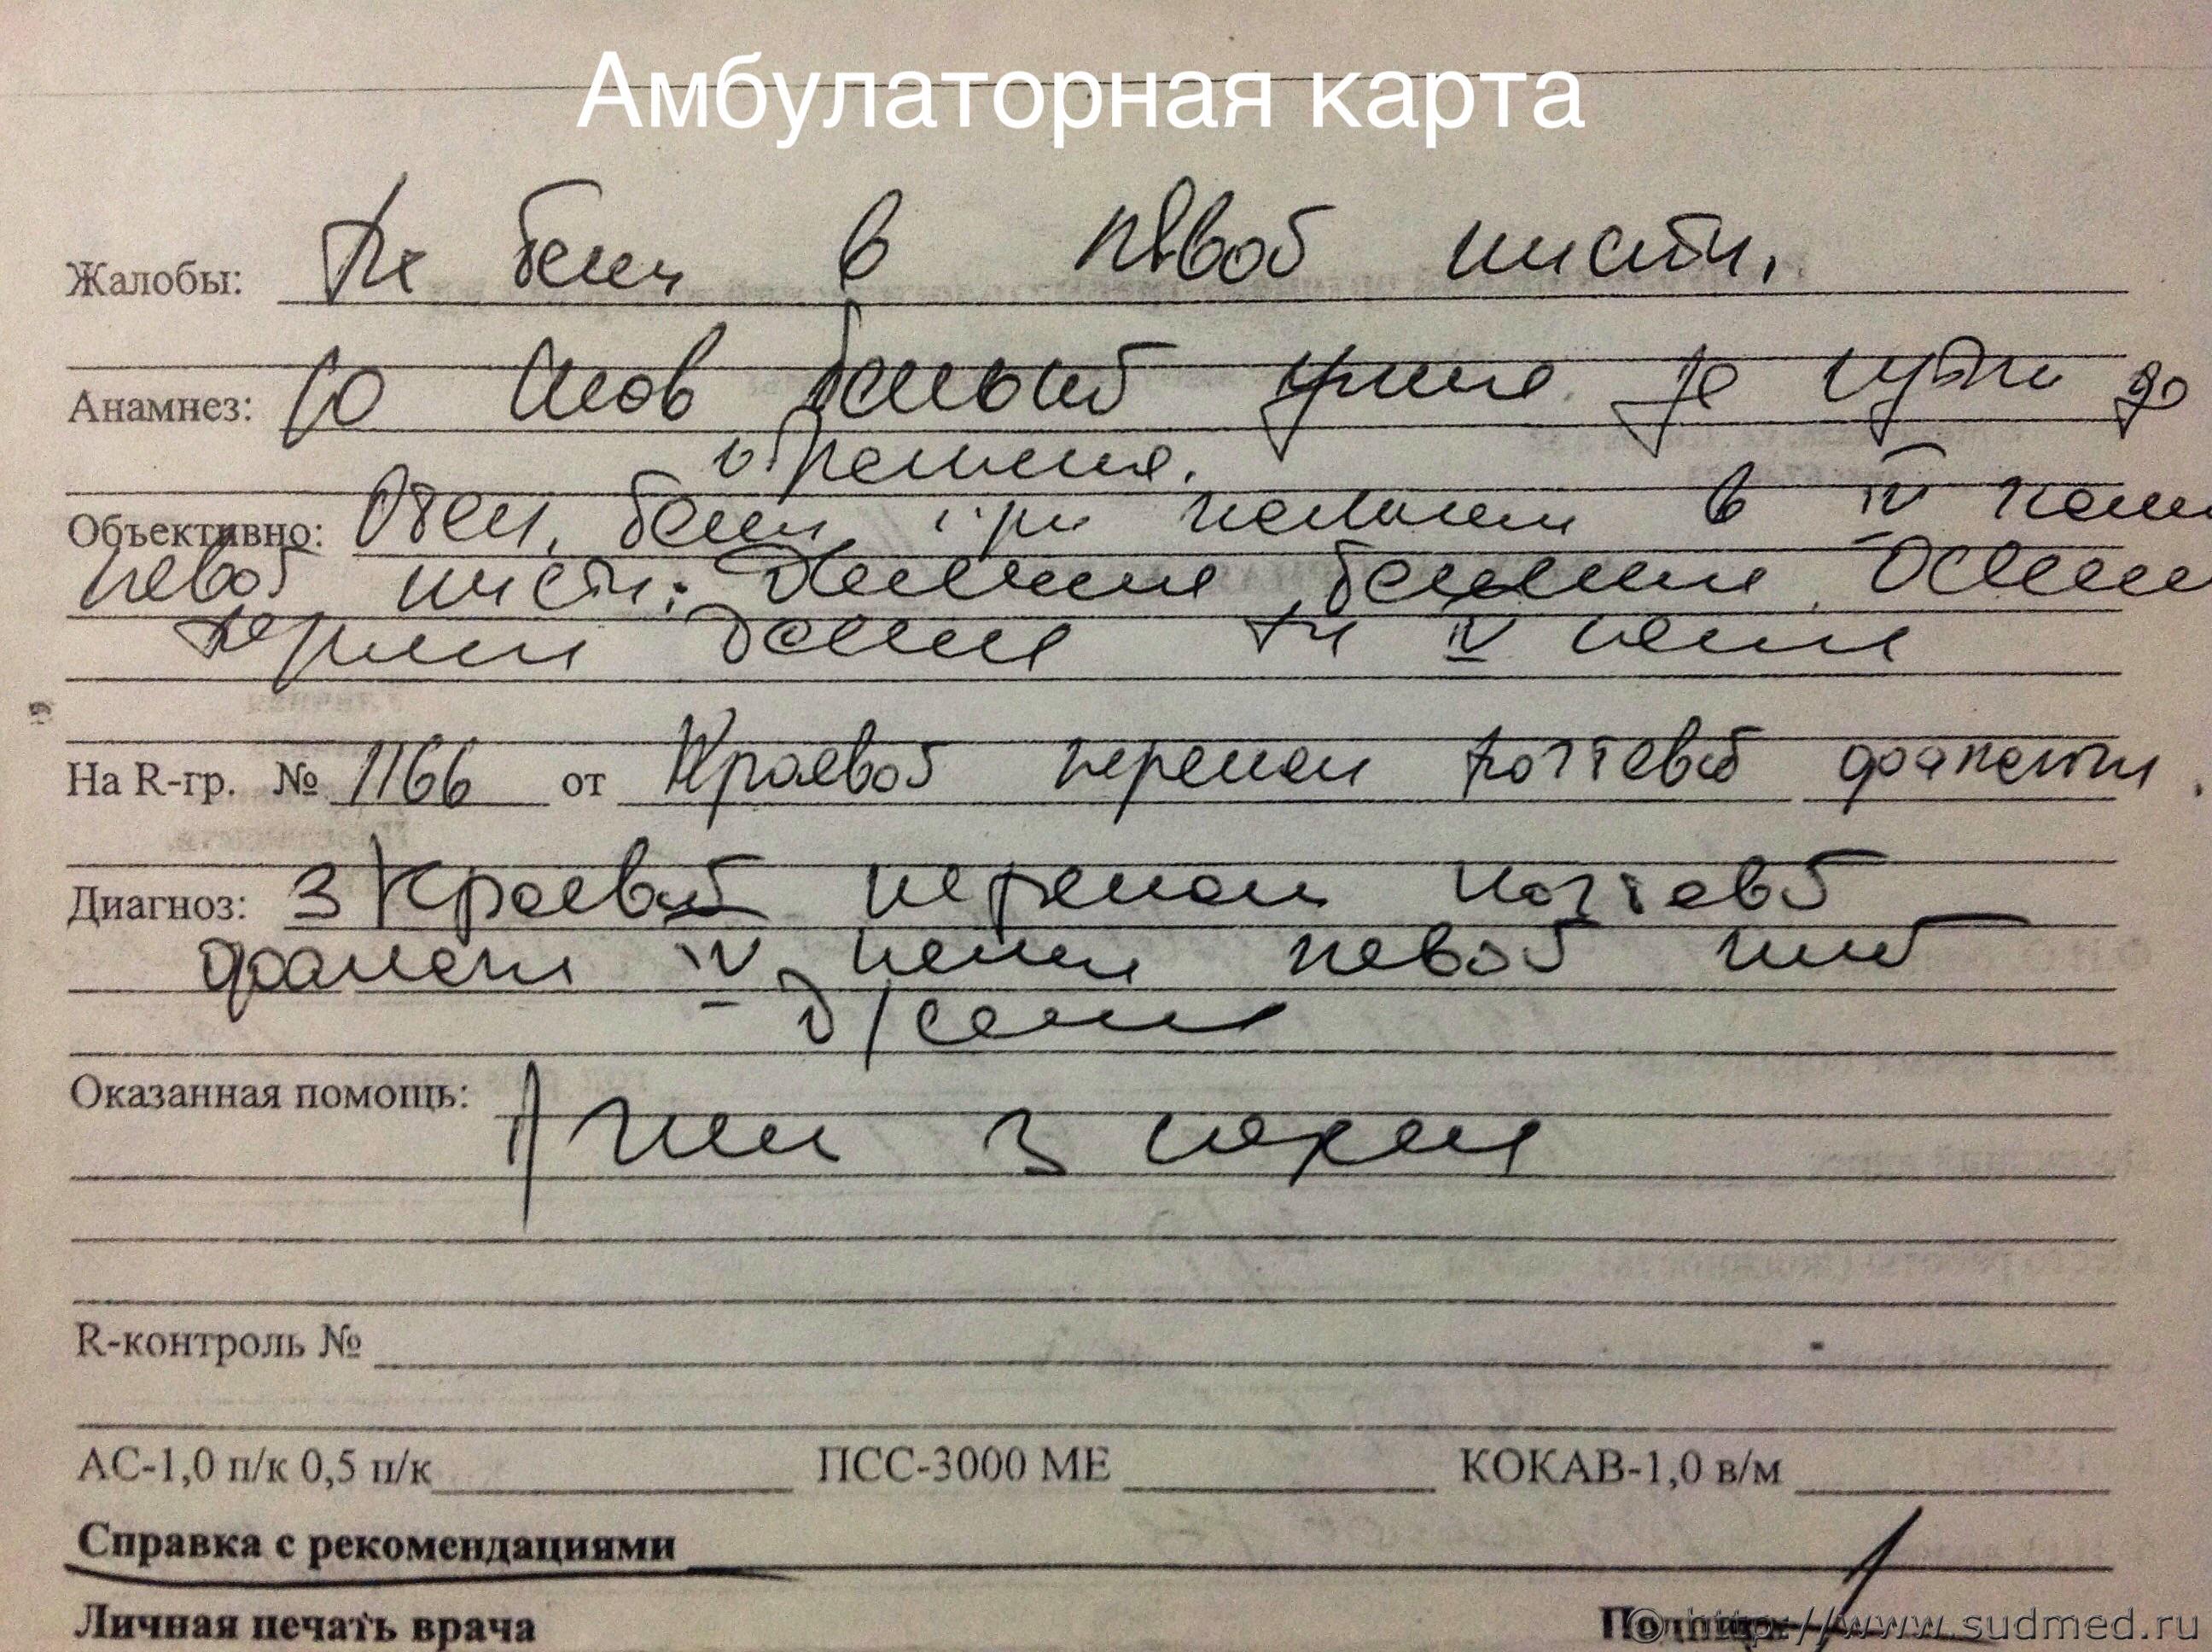 Амбулаторная карта
Жалобы: На боли в левой кисти.
Анамнез: Со слов больной травма за сутки до
обращения.
Объективно: Отек, боли при пальпации в IV пальце
левой кисти. Движения болезненны. Осевая
нагрузка на IV палец
На R-гр. № 1166 от Краевой перелом ногтевой фаланги.
Диагноз: З Краевой перелом ногтевой
фаланги IV пальца левой кисти
Оказанная помощь:
R-контроль №
АС-1,0 п/к 0,5 п/к ПСС-3000 МЕ КОКАВ-1,0 в/м
Справка с рекомендациями
Личная печать врача Подпись
© http://www.sudmed.ru